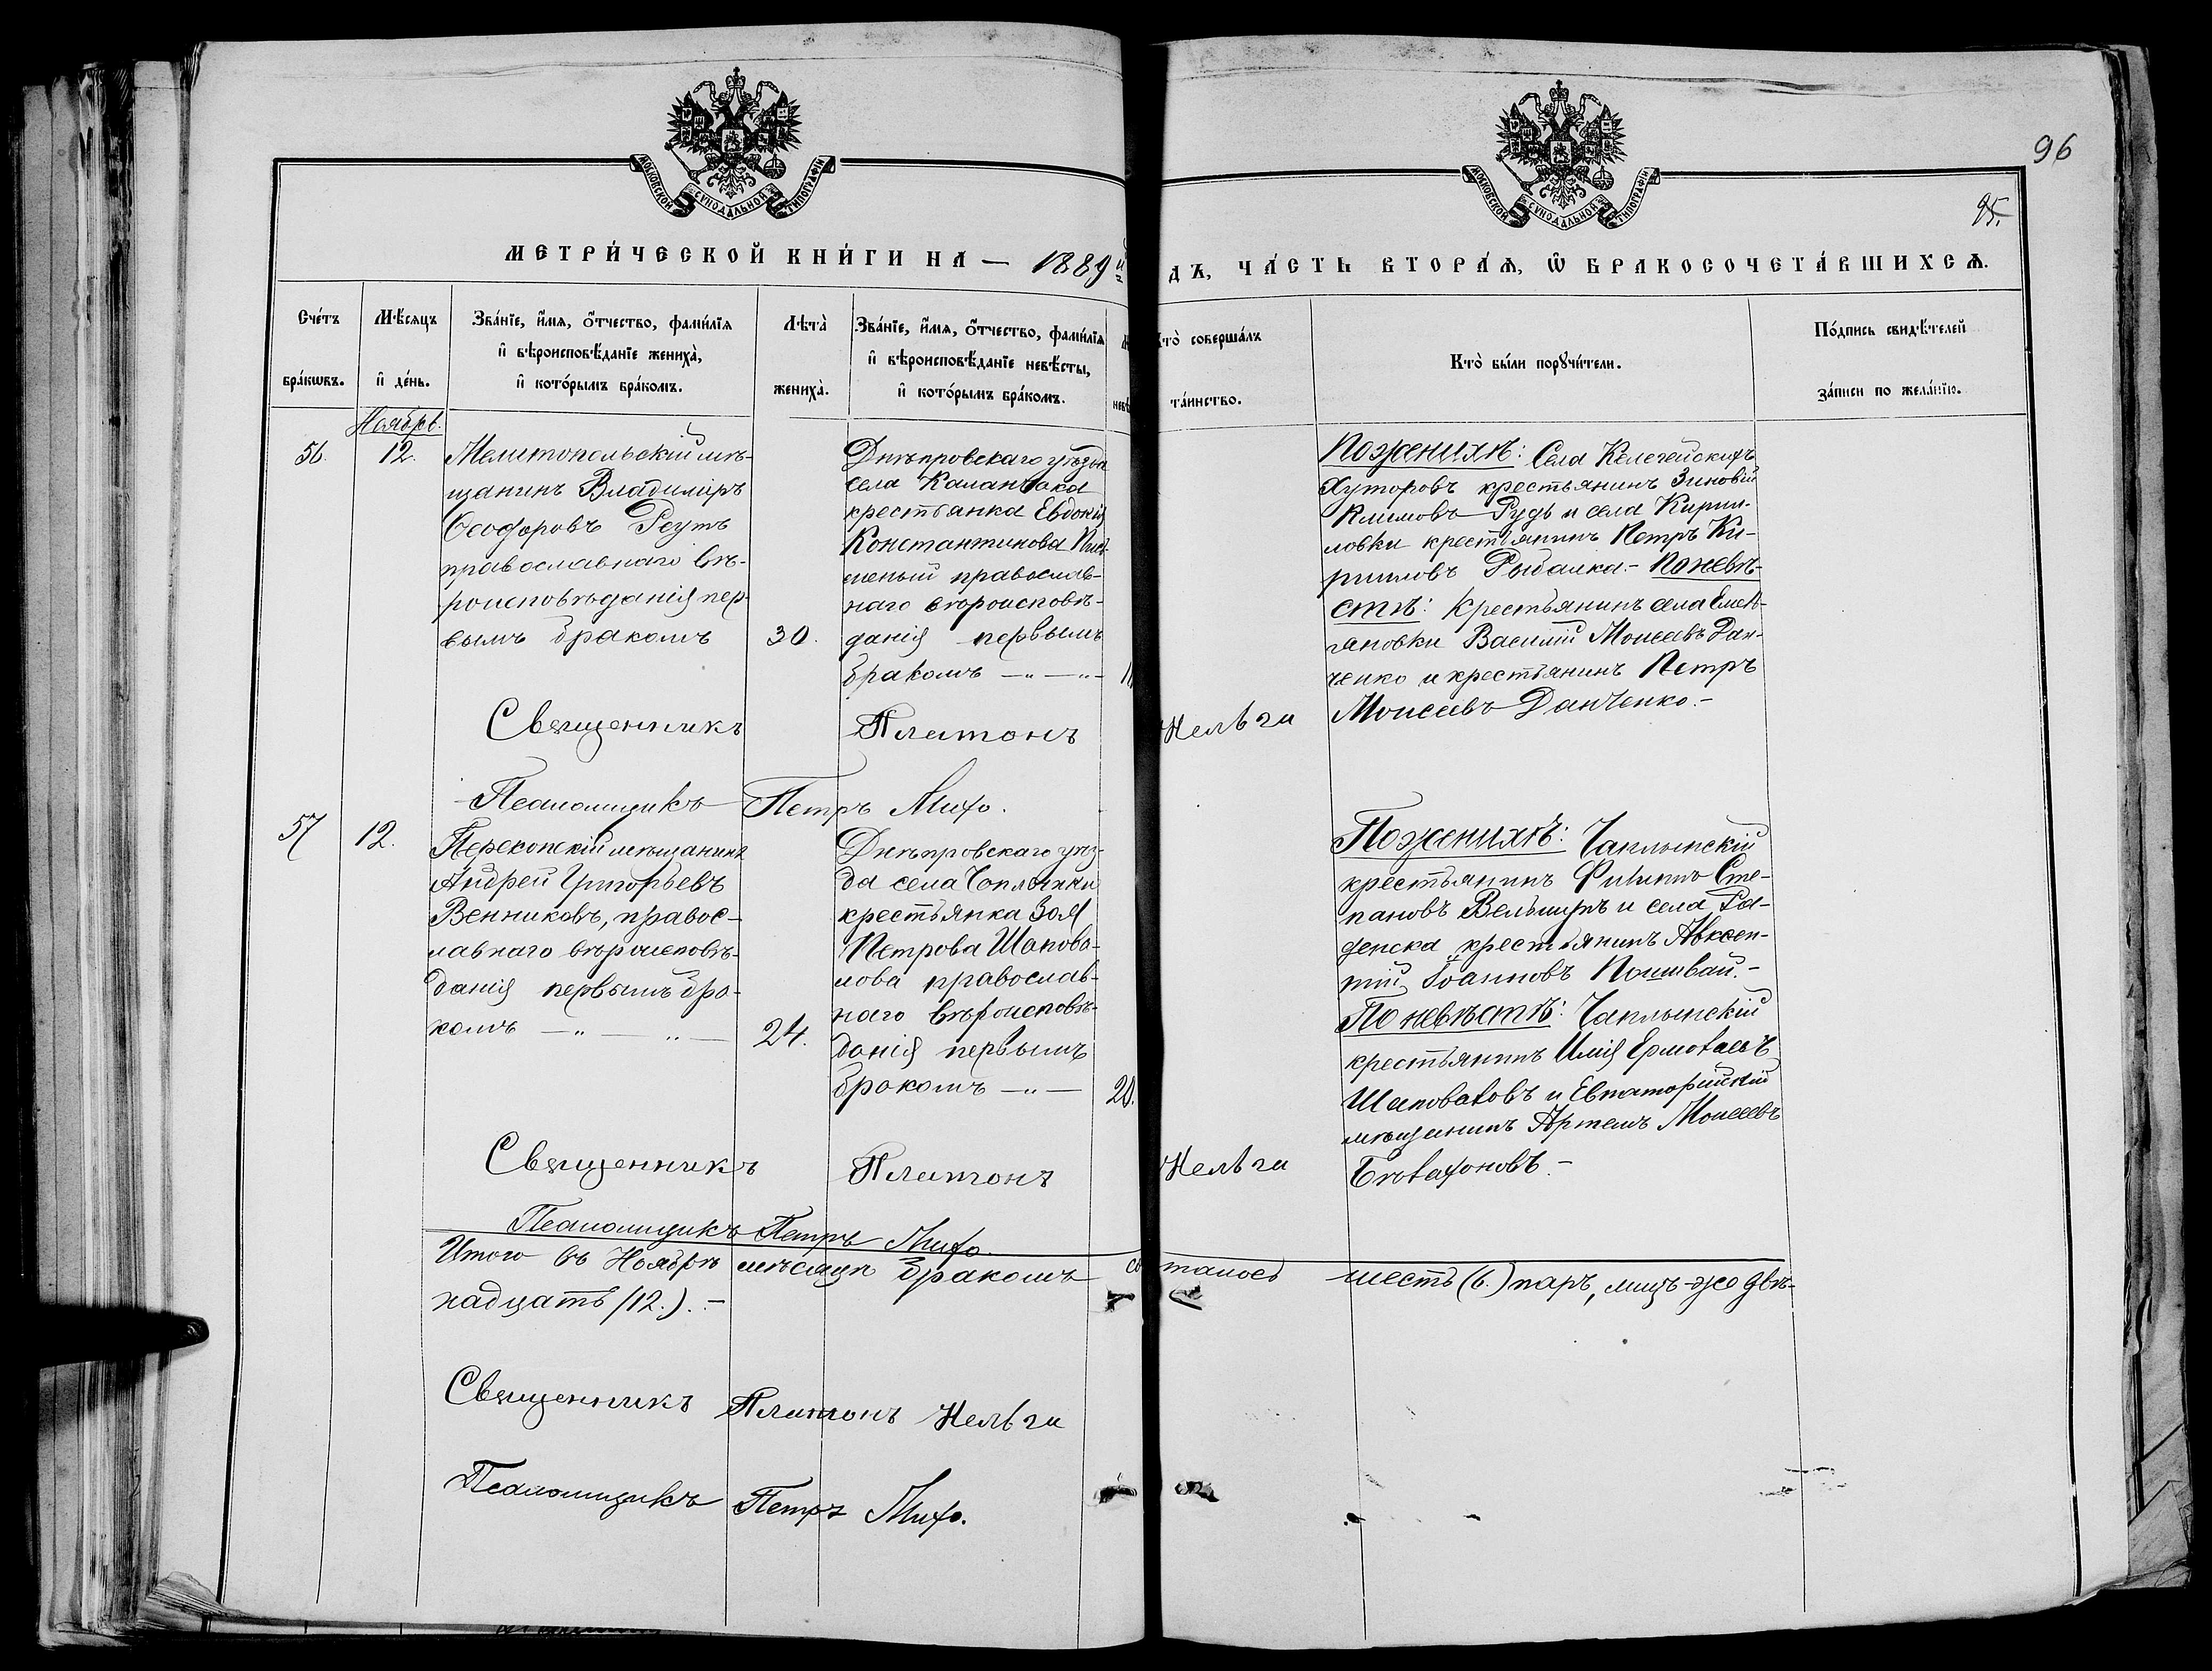 96
95.
МОСКОВСКОЙ СѴНОДАЛЬНОЙ ТИПОГРАФІИ
МОСКОВСКОЙ СѴНОДАЛЬНОЙ ТИПОГРАФІИ
МЕТРИ́ЧЕСКОЙ КНИ́ГИ НА — 1889й
ДЪ, ЧА́СТЬ ВТОРА́Я, Ѿ БРАКОСОЧЕТА́ВШИХСЯ.
Сче́тъ бра́кѡвъ.
Мѣ́сяцъ и҆ де́нь.
Зва́нїе, и҆́мя, о҆́тчество, фами́лїя
и҆ вѣроисповѣ́данїе жениха̀,
и҆ кото́рымъ бра́комъ.
Лѣта̀ жениха̀.
Зва́нїе, и҆́мя, о҆́тчество, фами́лїя
и҆ вѣроисповѣ́данїе невѣ́сты,
и҆ кото́рымъ бра́комъ.
Кто̀ соверша́лъ
та́инство.
Кто̀ бы́ли порꙋчи́тели.
По́дпись свидѣ́телей
за́писи по жела́нїю.
Ноябрь.
56. 12.
Мелитопольскій мѣ-
щанинъ Владиміръ
Ѳеодоровъ Реутъ
православнаго вѣ-
роисповѣданія пер-
вымъ бракомъ
30.
Днѣпровскаго уѣзда
села Каланчака
крестьянка Евдокія
Константинова
православ-
наго вѣроисповѣ-
данія первымъ
бракомъ —„—„—
По женихѣ: Села Келегейскихъ
Хуторовъ крестьянинъ Зиновій
Климовъ Рудь и села Кирил-
ловки крестьянинъ Петръ Ки-
рилловъ Рыбалка.- По невѣ-
стѣ: Крестьянинъ села Емель-
яновки Василій Моисеевъ Дан-
ченко и крестьянинъ Петръ
Моисеевъ Данченко.-
Священникъ Платонъ Нельги
Псаломщикъ Петръ Михо.
57 12.
Перекопскій мѣщанинъ
Андрей Григорьевъ
Венниковъ, правос-
лавнаго вѣроисповѣ-
данія первымъ бра-
комъ —„—„—
24.
Днѣпровскаго уѣз-
да села Чаплинки
крестьянка Зоя
Петрова Шапова-
лова православ-
наго вѣроисповѣ-
данія первымъ
бракомъ —„—
20.
По женихѣ: Чаплынскій
крестьянинъ Филиппъ Сте-
пановъ Вельширъ и села Ра-
денска крестьянинъ Авксен-
тій Іоанновъ Пошивай.-
По невѣстѣ: Чаплынскій
крестьянинъ Илія Ермолаевъ
Шаповаловъ и Евпаторійскій
мѣщанинъ Артемъ Моисеевъ
Священникъ Платонъ Нельги
Псаломщикъ Петръ Михо.
Итого въ Ноябрѣ мѣсяцѣ бракомъ сочеталось шесть (6.) паръ, лицъ-же двѣ-
надцать (12.).-
Священникъ Платонъ Нельги
Псаломщикъ Петръ Михо.